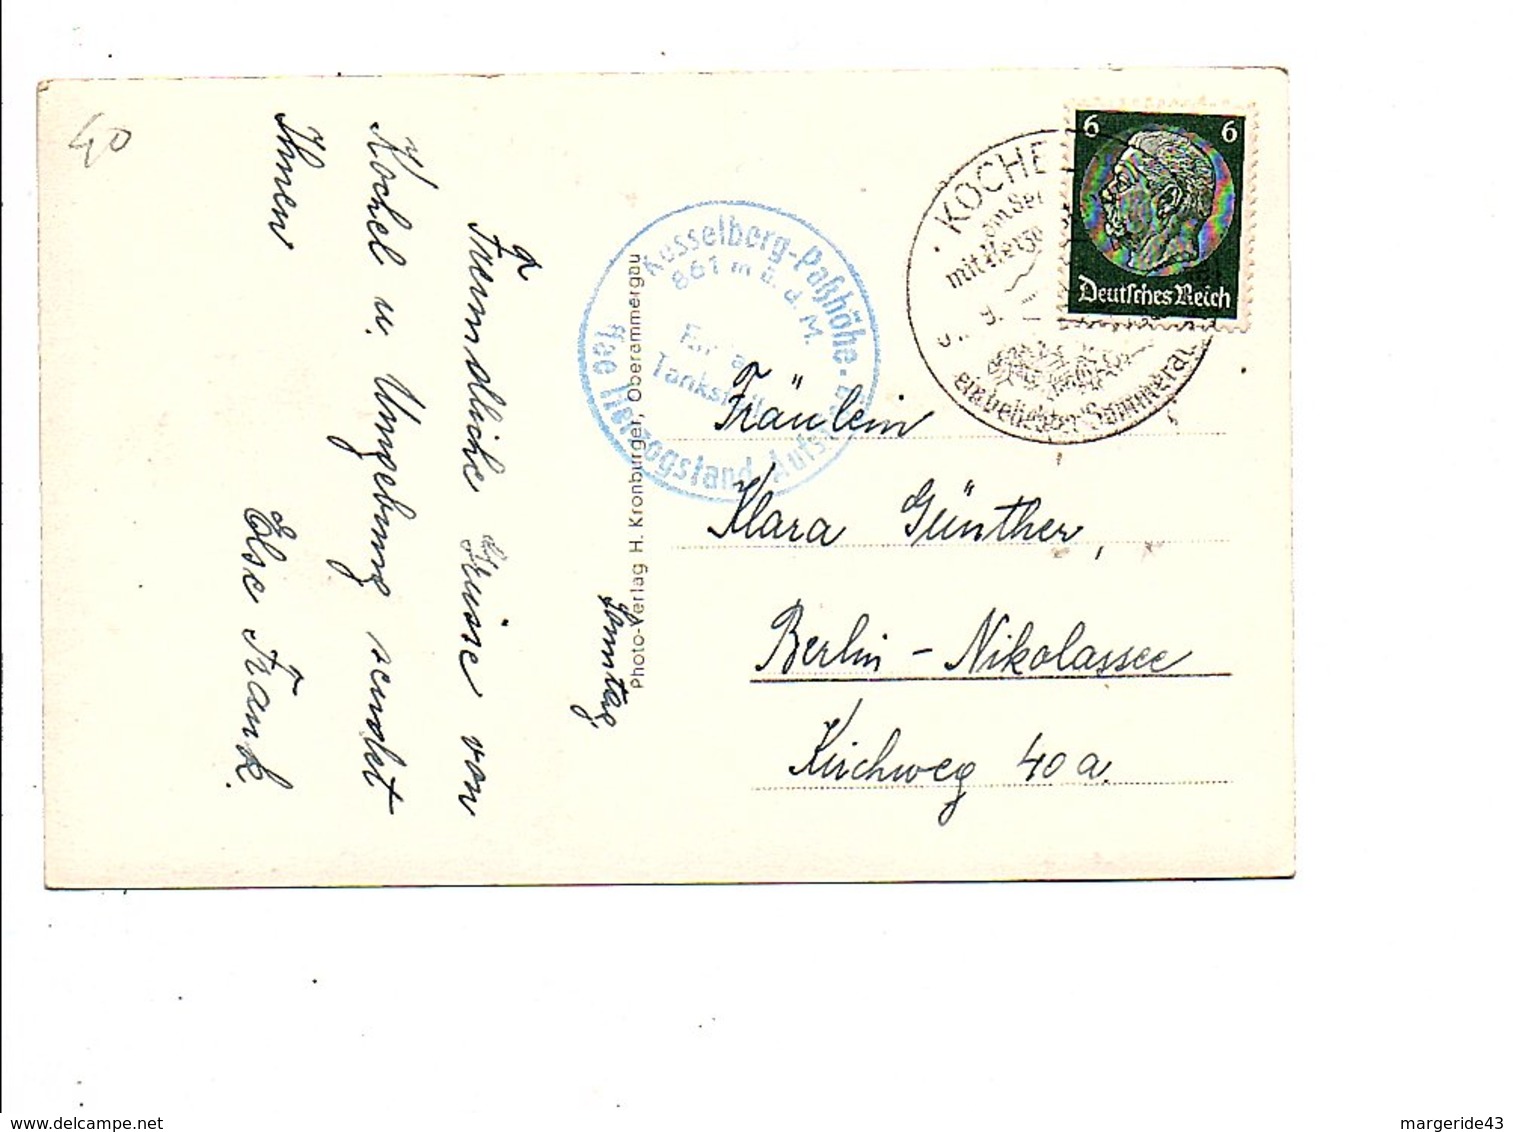 40
Sonntag.
Freundliche Grüsse von
Kochel u. Umgebung sendet
Ihnen
Else Frank.
Photo-Verlag H. Kronburger, Oberammergau
Kesselberg-Paßhöhe
861 m ü. d. M.
Herzogstand
KOCHE
am See
ein beliebter
6 6
Deutsches Reich
Fräulein
Klara Günther,
Berlin - Nikolassee
Kirchweg 40 a.
www.delcampe.net
margeride43